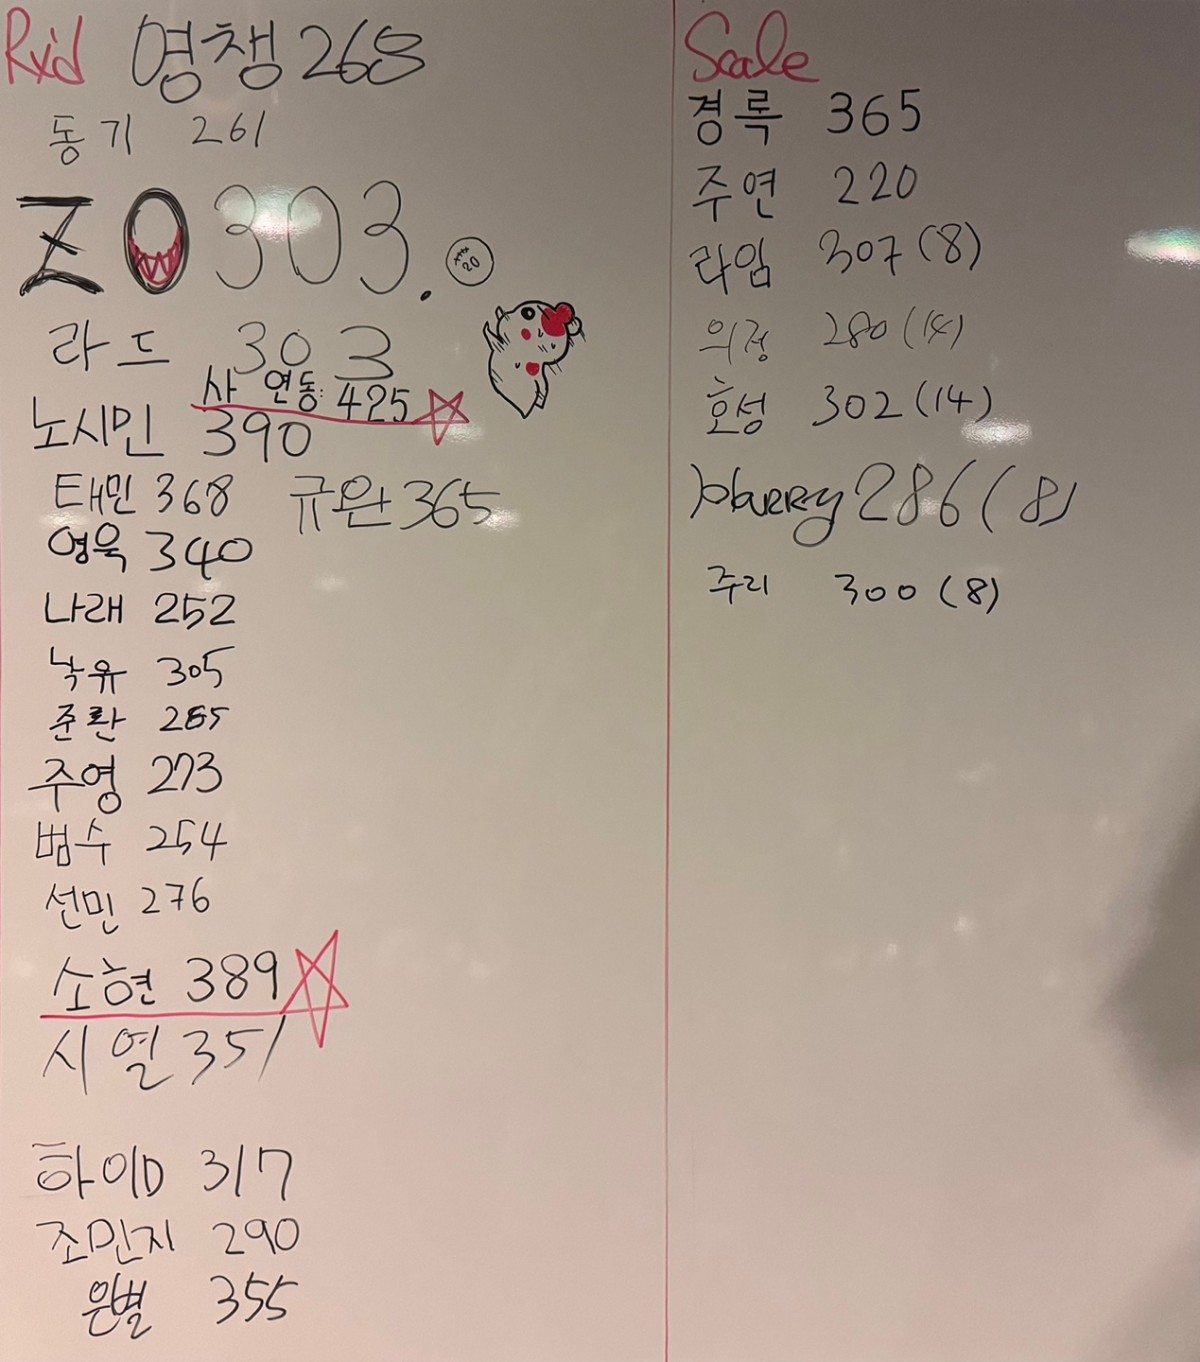 Rx'd 영챙 268
동기 261
ZO 303.
라드 303
사 연동: 425
노시민 390
태민 368 규완 365
영욱 340
나래 252
낙유 305
준란 285
주영 273
범수 254
선민 276
소현 389
시열 351
하이D 317
조민지 290
은별 355
Scale
경록 365
주연 220
라임 307 (8)
의정 280 (14)
호성 302 (14)
Harry 286 (8)
주리 300 (8)